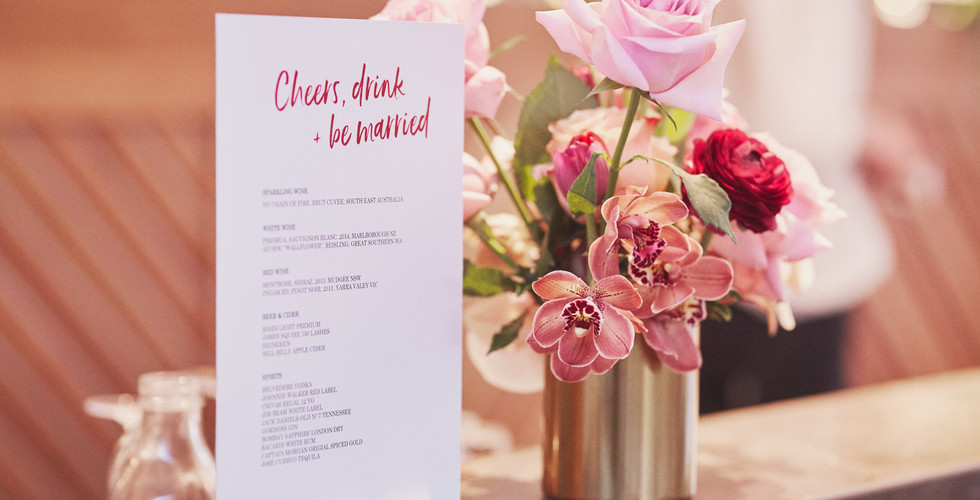 Cheers, drink
+ be married
SPARKLING WINE
CHAIN OF FIRE, BRUT CUVEE, SOUTH EAST AUSTRALIA
WHITE WINE
SAUVIGNON BLANC, 2014, MARLBOROUGH NZ
AD HOC "WALLFLOWER", REISLING, GREAT SOUTHERN WA
RED WINE
MONTROSE, SHIRAZ 2013, MUDGEE NSW
PINOT NOIR 2014, YARRA VALEY VIC
BEER & CIDER
HAHN LIGHT PREMIUM
JAMES SQUIRE 150 LASHES
HEINEKEN
APPLE CIDER
SPIRITS
BELVEDERE VODKA
JOHNNIE WALKER RED LABEL
CHIVAS REGAL 12 YO
JIM BEAM WHITE LABEL
JACK DANIELS OLD Nº7 TENNESSEE
GORDONS GIN
BOMBAY SAPPHIRE LONDON DRY
BACARDI WHITE RUM
CAPTAIN MORGAN ORIGIAL SPICED GOLD
JOSE CUERVO TEQUILA